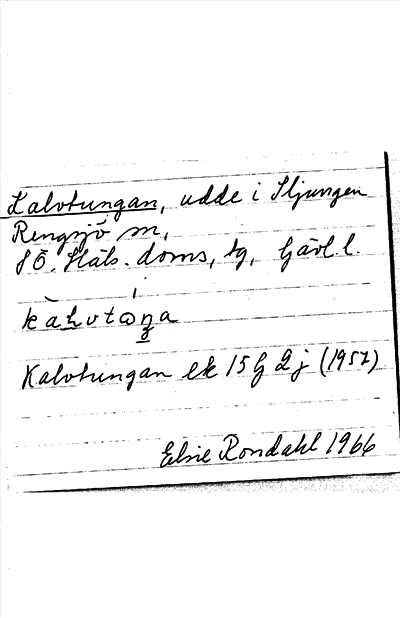 Kalvtungan, udde i Iljungen
Rengsjö sn,
SÖ. Häls. doms, tg, Gävl. l.
Kalvtungan ek 15 G 2 j (1957)
Elsie Rondahl 1966